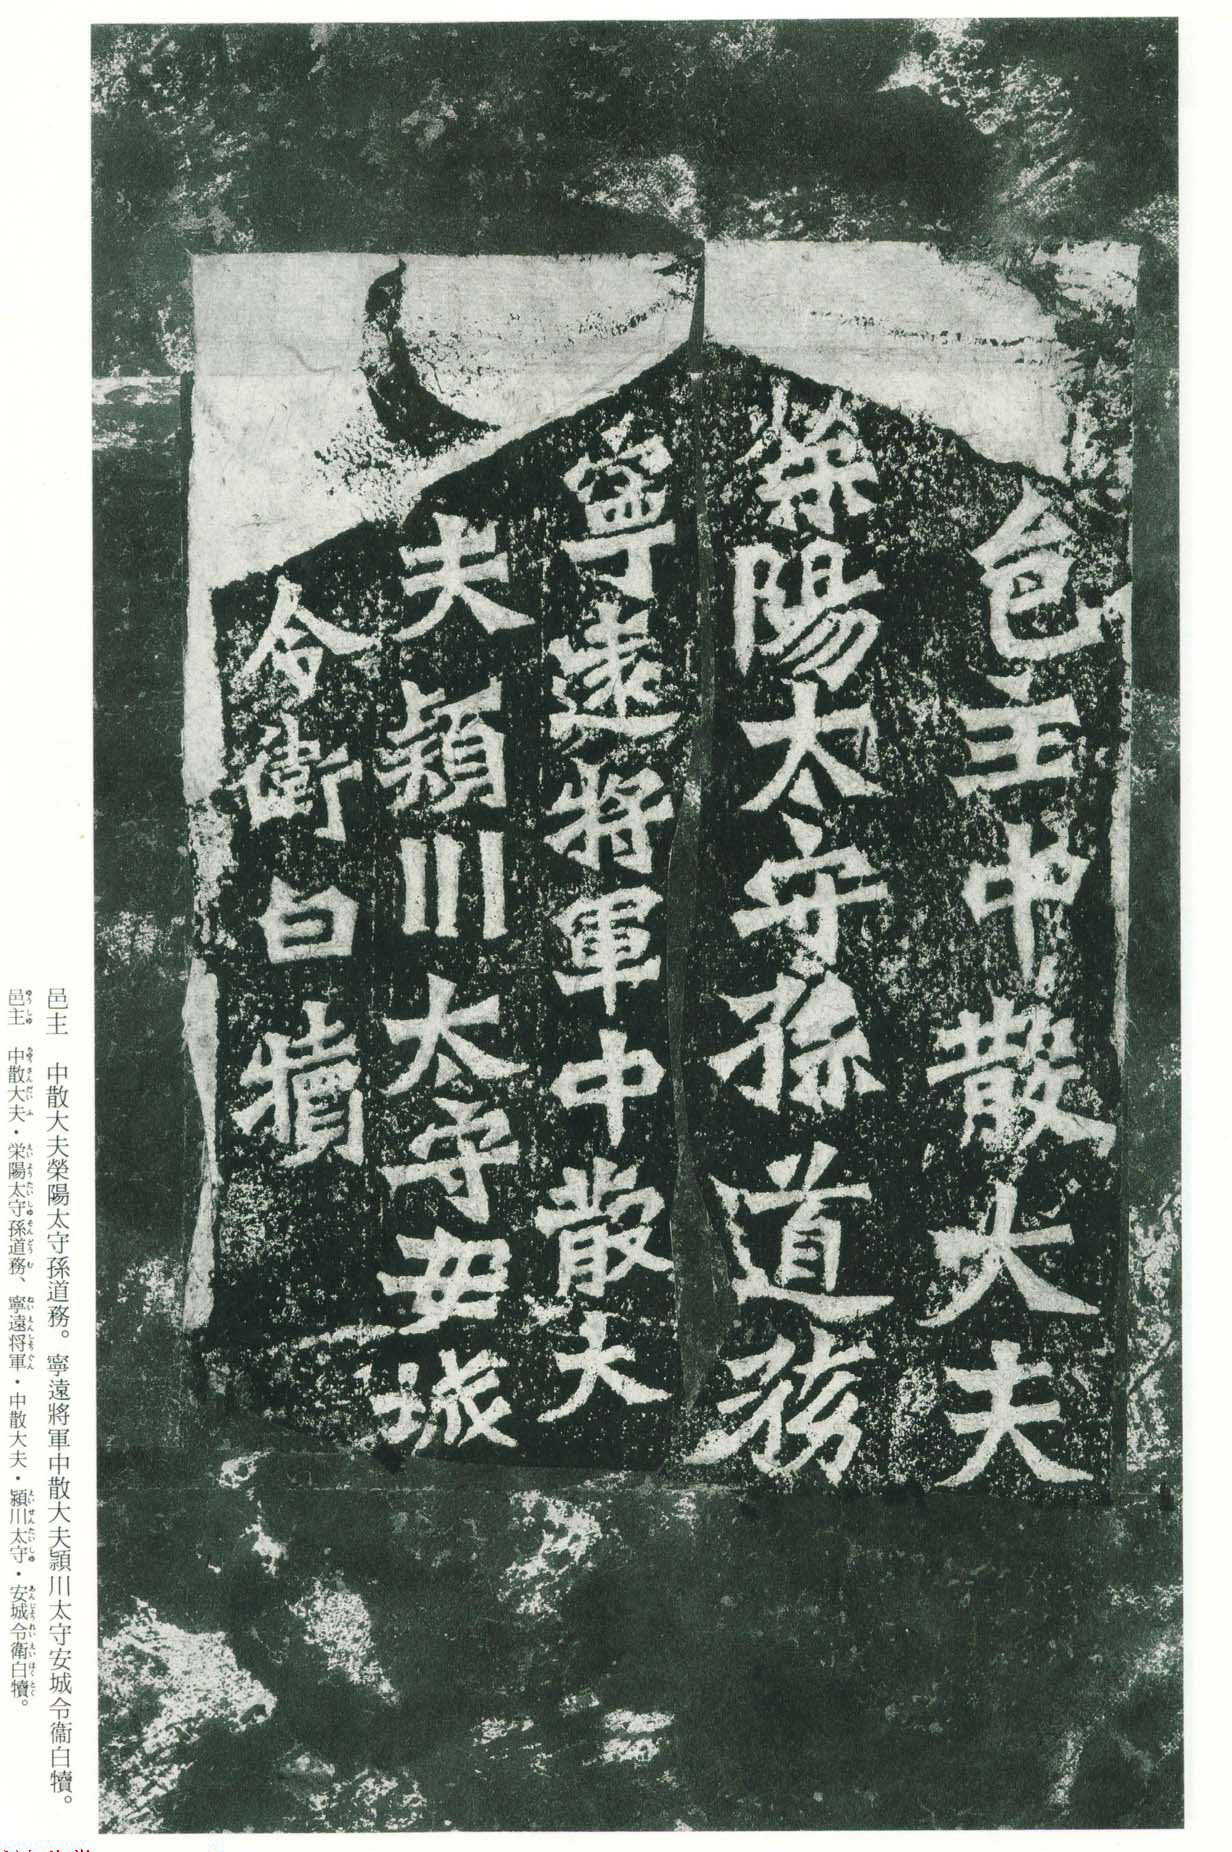 邑主中散大夫
滎陽太守孫道務
寧遠將軍中散大
夫潁川太守安城
令衛白犢
邑主　中散大夫滎陽太守孫道務。寧遠將軍中散大夫潁川太守安城令衞白犢。
邑主　中散大夫・栄陽太守孫道務、寧遠将軍・中散大夫・潁川太守・安城令衛白犢。